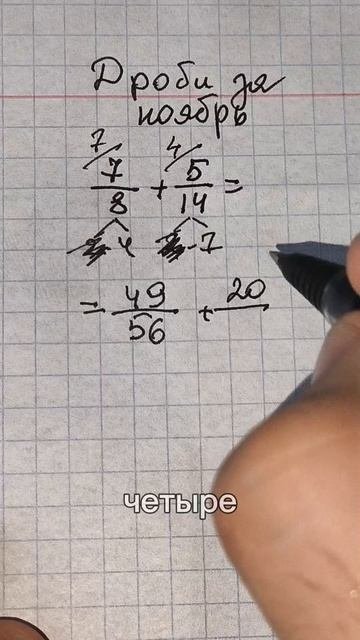 Дроби за
ноябрь
7 4
7/8 + 5/14 =
4 7
= 49/56 + 20
четыре